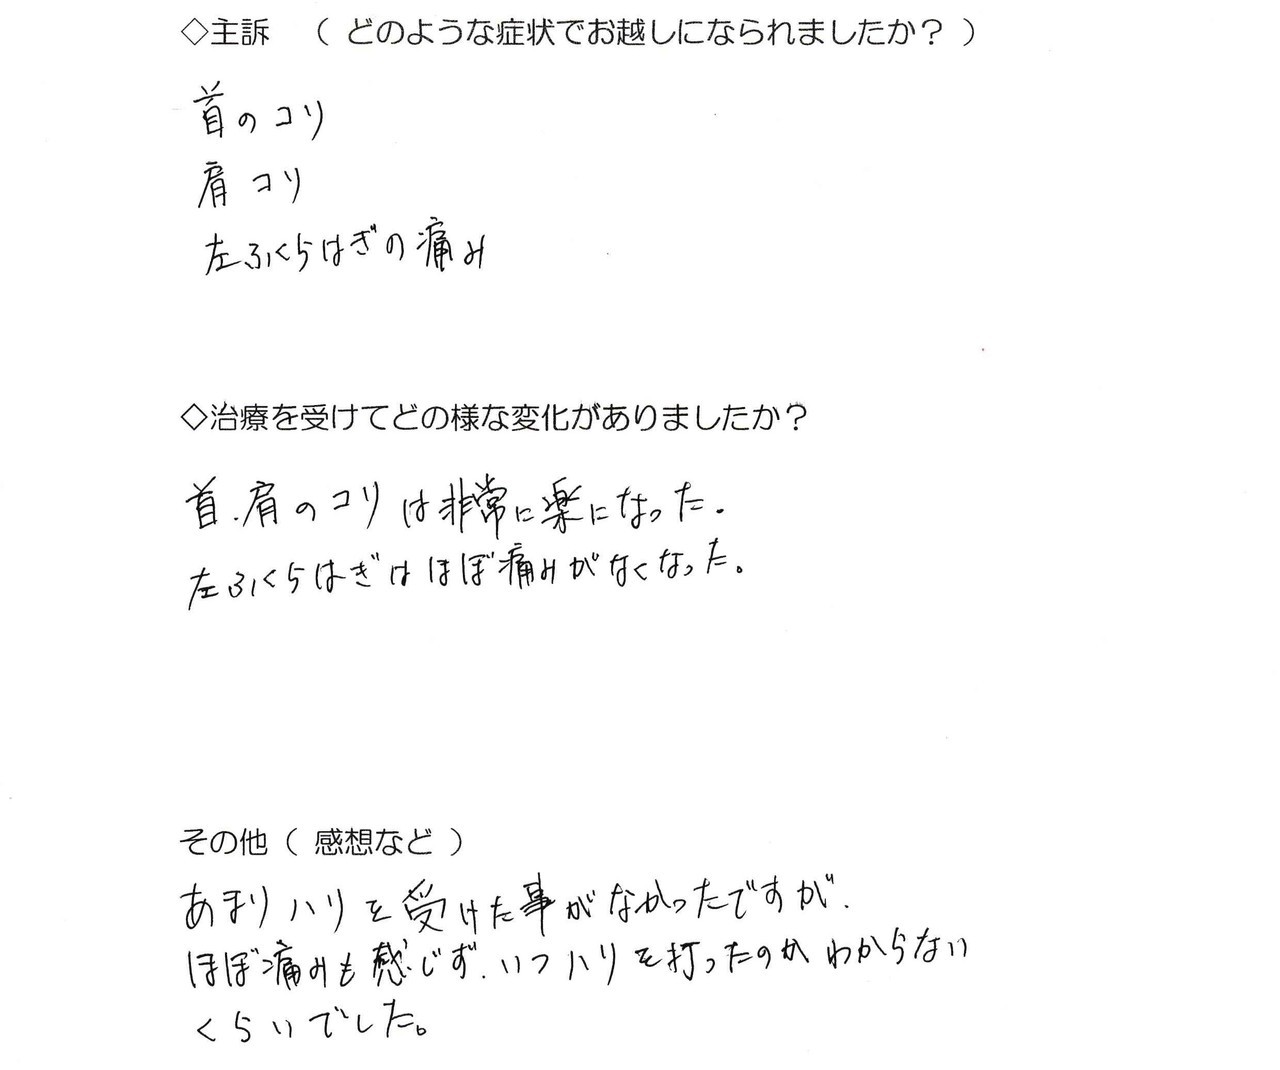 ◇主訴　( どのような症状でお越しになられましたか？ )
首のコリ
肩コリ
左ふくらはぎの痛み
◇治療を受けてどの様な変化がありましたか？
首、肩のコリは非常に楽になった。
左ふくらはぎはほぼ痛みがなくなった。
その他 ( 感想など )
あまりハリを受けた事がなかったですが、
ほぼ痛みも感じず、いつハリを打ったのかわからない
くらいでした。